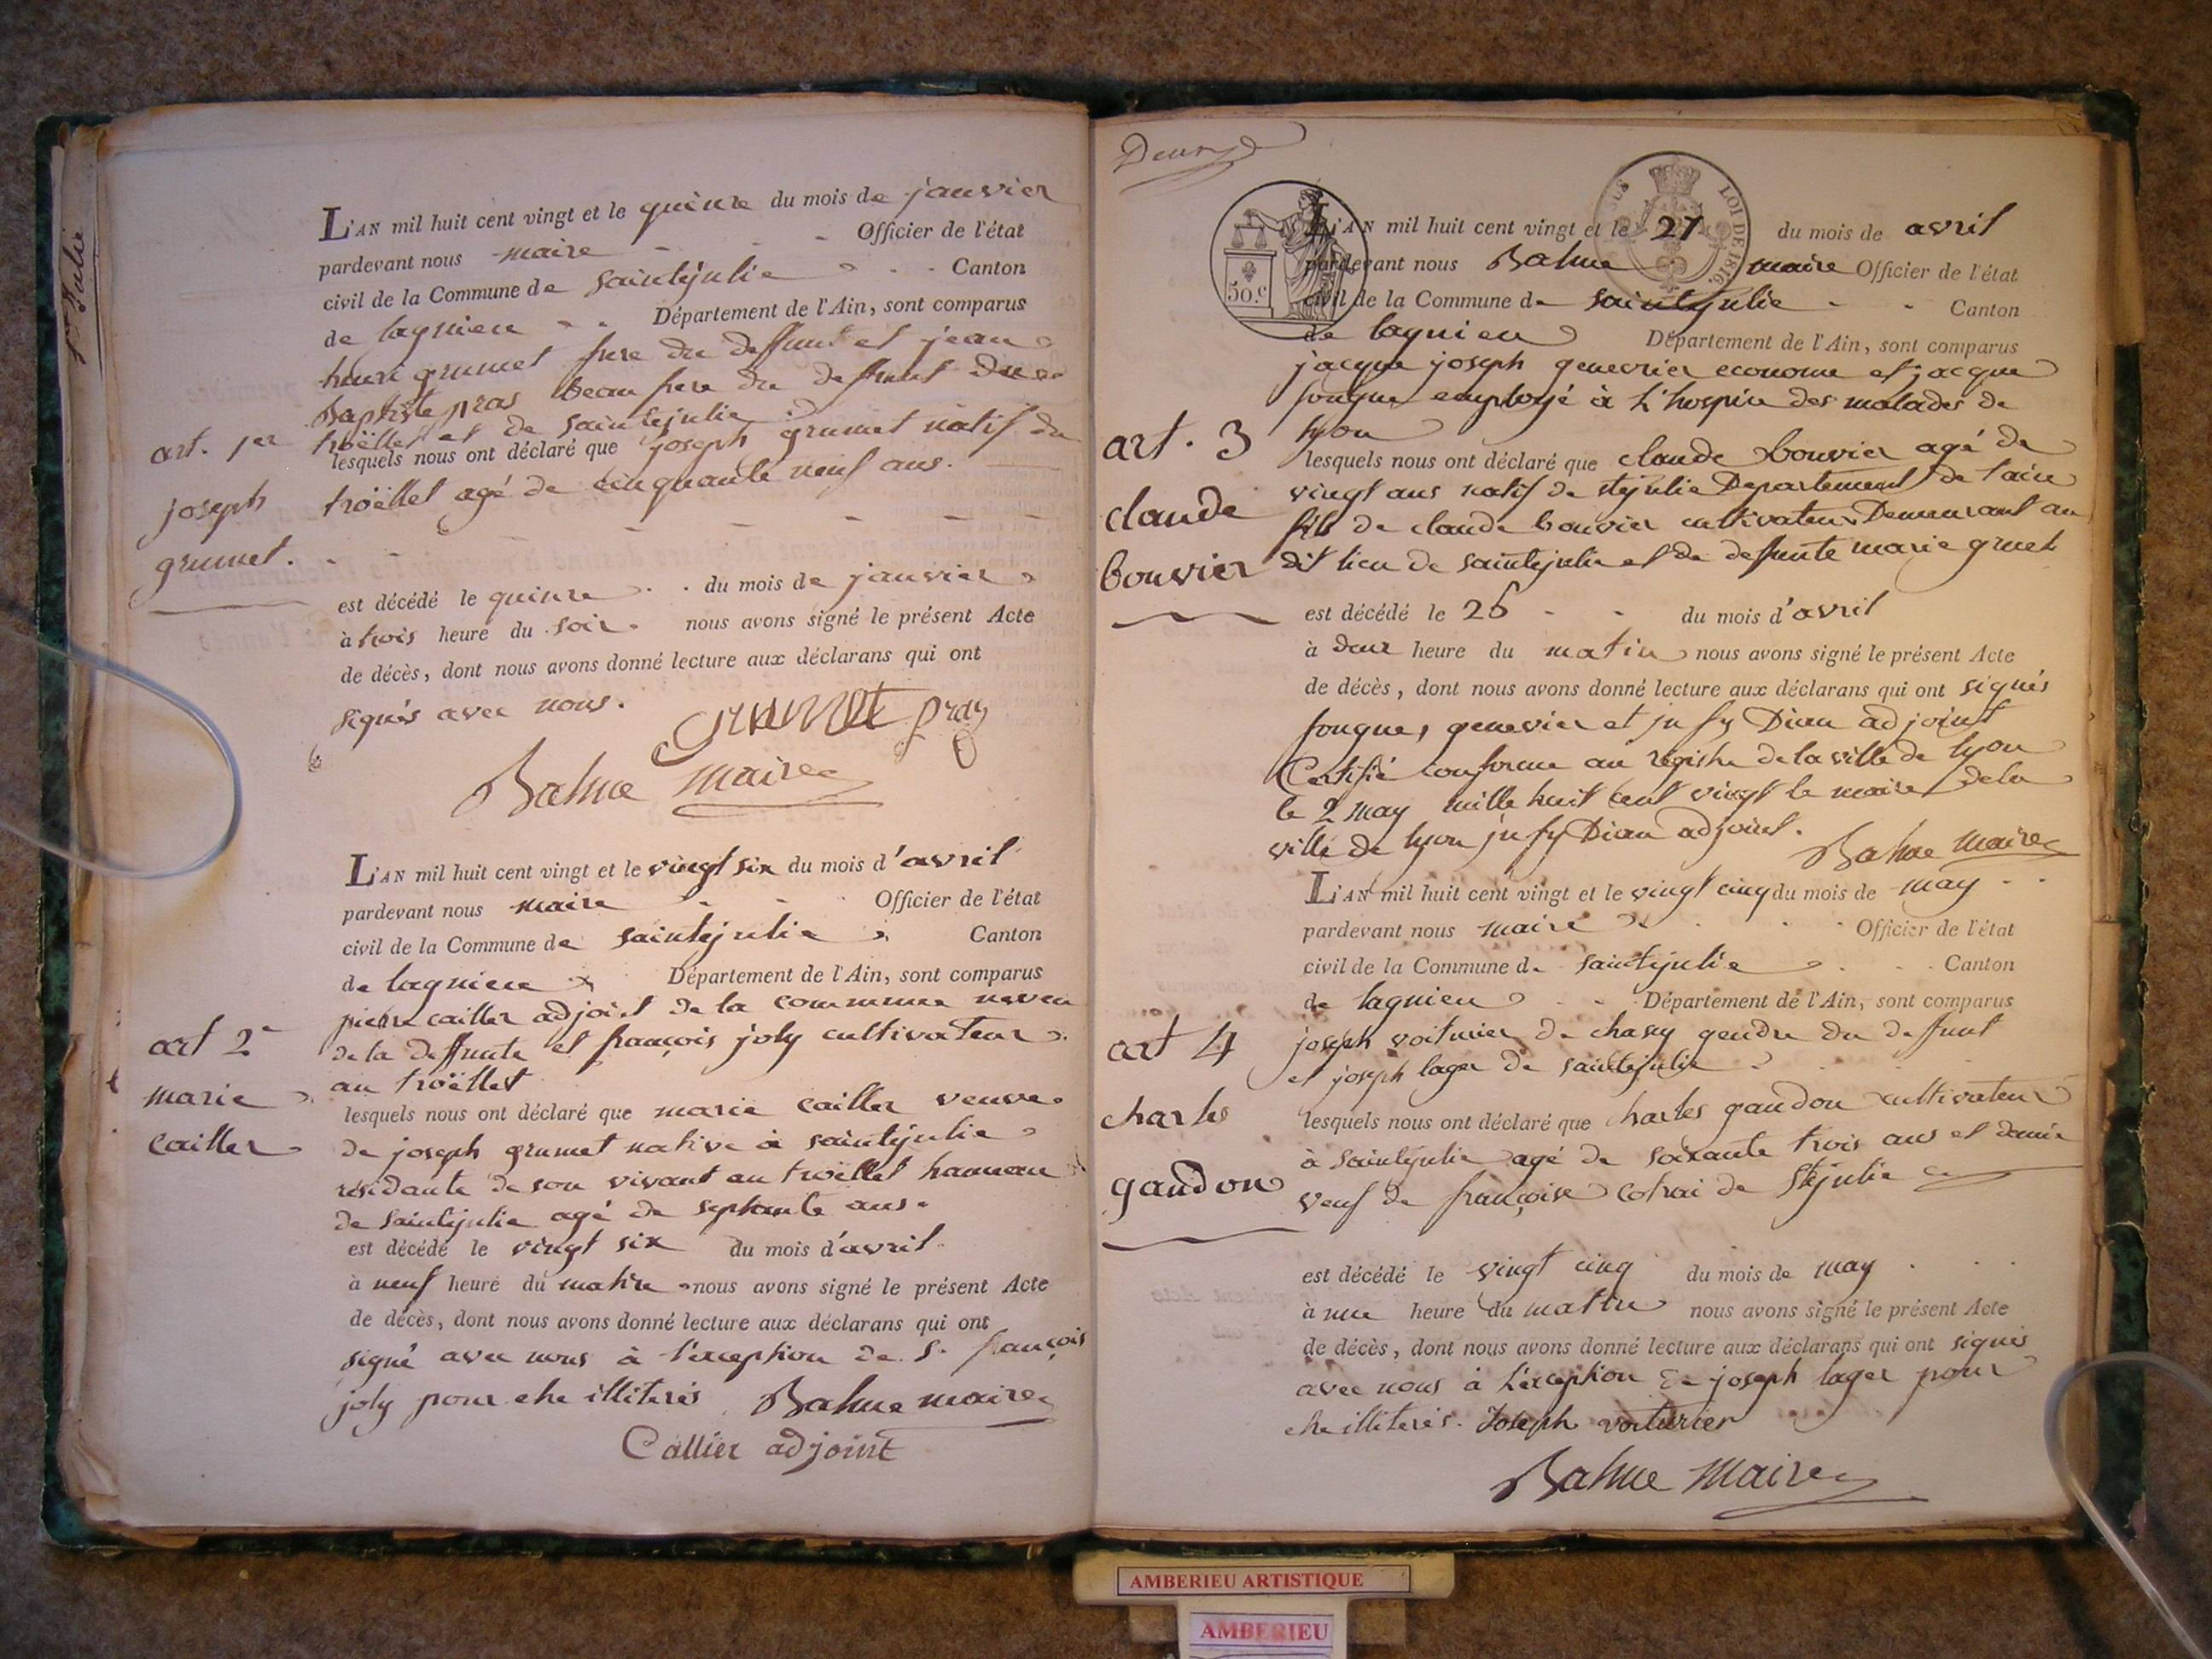 Ste Julie
L'AN mil huit cent vingt et le quinze du mois de janvier
pardevant nous maire Officier de l'état
civil de la Commune de saintejulie Canton
de lagnieu Département de l'Ain, sont comparus
henri grumet frere du deffunt et jean
Baptiste pras beau frere du deffunt du
troëllet et de saintejulie
lesquels nous ont déclaré que joseph grumet natif du
troëllet agé de cinquante neuf ans.
art. 1er
joseph
grumet.
est décédé le quinze du mois de janvier
à trois heure du soir nous avons signé le présent Acte
de décès, dont nous avons donné lecture aux déclarans qui ont
signés avec nous.
Grumet pras
Balme maire
L'AN mil huit cent vingt et le vingt six du mois d'avril
pardevant nous maire Officier de l'état
civil de la Commune de saintejulie Canton
de lagnieu Département de l'Ain, sont comparus
pierre cailler adjoint de la commune neveu
de la deffunte et françois joly cultivateur
au troëllet
art 2e
marie
cailler
lesquels nous ont déclaré que marie cailler veuve
de joseph grumet native à saintejulie
résidante de son vivant au troëllet hameau
de saintejulie agé de septante ans.
est décédé le vingt six du mois d'avril
à neuf heure du matin nous avons signé le présent Acte
de décès, dont nous avons donné lecture aux déclarans qui ont
signé avec nous à l'exception de S. françois
joly pour etre illiterés. Balme maire
Callier adjoint
Deux
50.c
LOI DE 1816
L'AN mil huit cent vingt et le 27 du mois de avril
pardevant nous Balme maire Officier de l'état
civil de la Commune de saintejulie Canton
de lagnieu Département de l'Ain, sont comparus
jacque joseph genevrier econome et jacque
fougue employé à l'hospice des malades de
lyon
art. 3
claude
bouvier
lesquels nous ont déclaré que claude bouvier agé de
vingt ans natif de stejulie Departement de l'ain
fils de claude bouvier cultivateur Demeurant au
dit lieu de saintejulie et de deffunte marie gruet
est décédé le 26 du mois d'avril
à deux heure du matin nous avons signé le présent Acte
de décès, dont nous avons donné lecture aux déclarans qui ont signés
fougue, genevier et Dian adjoint
Certifié conforme au régistre de la ville de lyon
le 2 may mille huit cent vingt le maire de la
ville de lyon Dian adjoint.
Balme maire
L'AN mil huit cent vingt et le vingt cinq du mois de may
pardevant nous maire Officier de l'état
civil de la Commune de saintejulie Canton
de lagnieu Département de l'Ain, sont comparus
joseph voiturier de chasey gendre du deffunt
et joseph lager de saintejulie
art 4
charles
gaudon
lesquels nous ont déclaré que charles gaudon cultivateur
à saintejulie agé de soixante trois ans et demie
veuf de françoise cotrai de Stejulie
est décédé le vingt cinq du mois de may
à une heure du matin nous avons signé le présent Acte
de décès, dont nous avons donné lecture aux déclarans qui ont signés
avec nous à l'exception de joseph lager pour
etre illiterés. Joseph voiturier
Balme Maire
AMBERIEU ARTISTIQUE
AMBERIEU